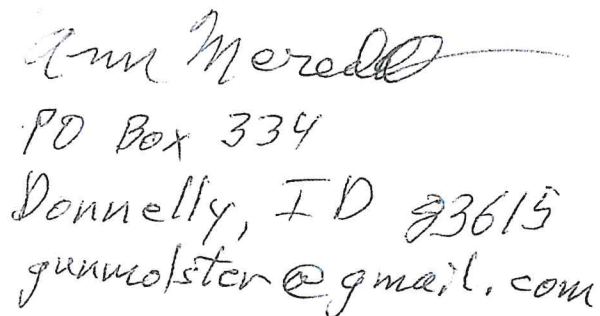 Ann Meredith
PO Box 334
Donnelly, ID 83615
gunmolster@gmail.com